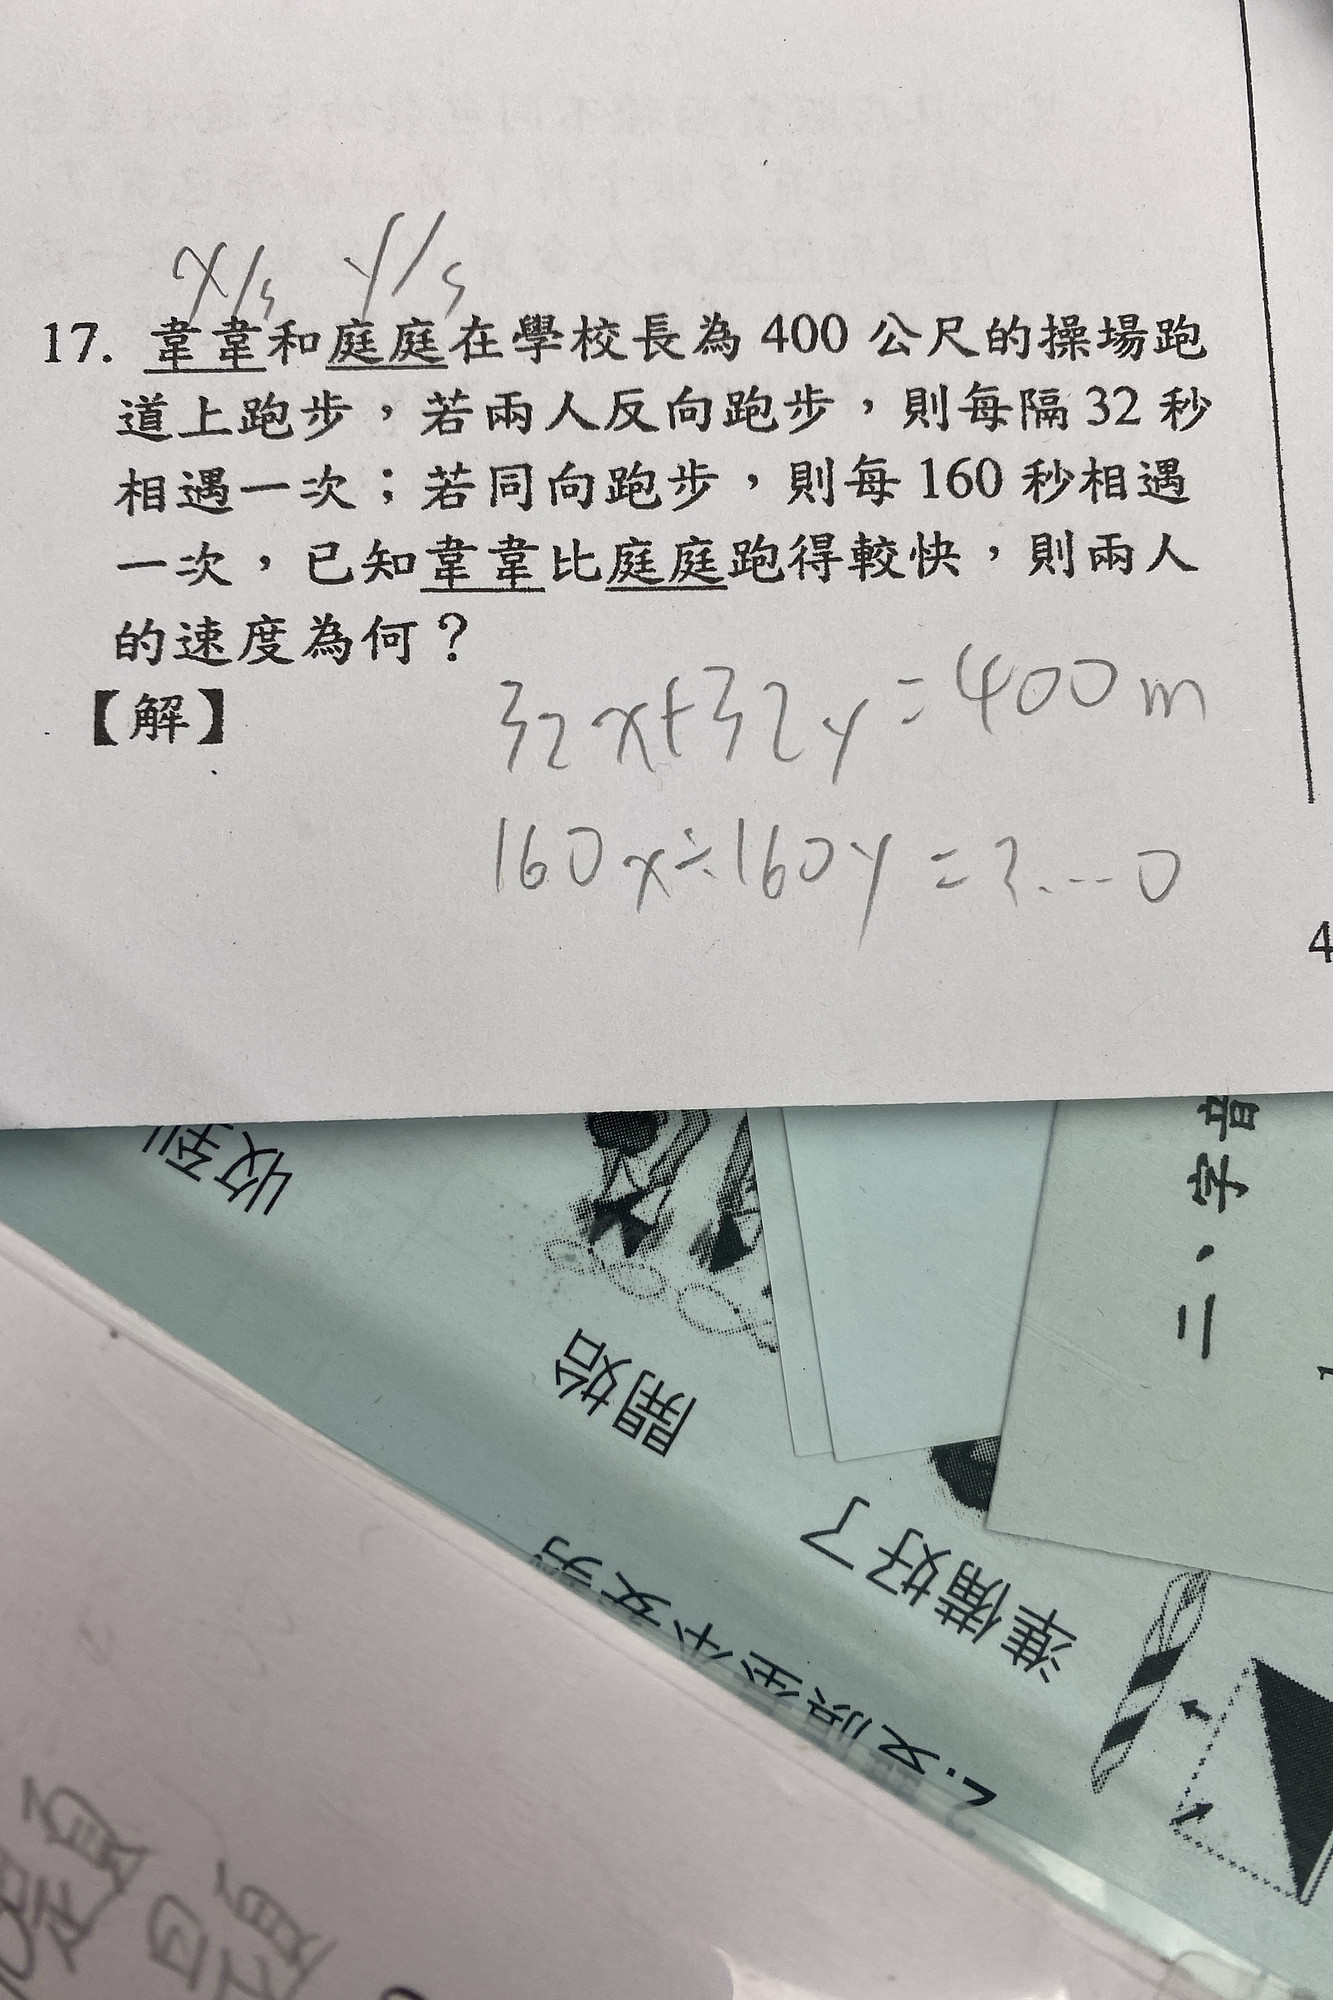 x/s y/s
17. 韋韋和庭庭在學校長為 400 公尺的操場跑
道上跑步，若兩人反向跑步，則每隔 32 秒
相遇一次；若同向跑步，則每 160 秒相遇
一次，已知韋韋比庭庭跑得較快，則兩人
的速度為何？
【解】
32x+32y=400m
160x÷160y=?...0
4
收到
開始
準備好了
二、字音